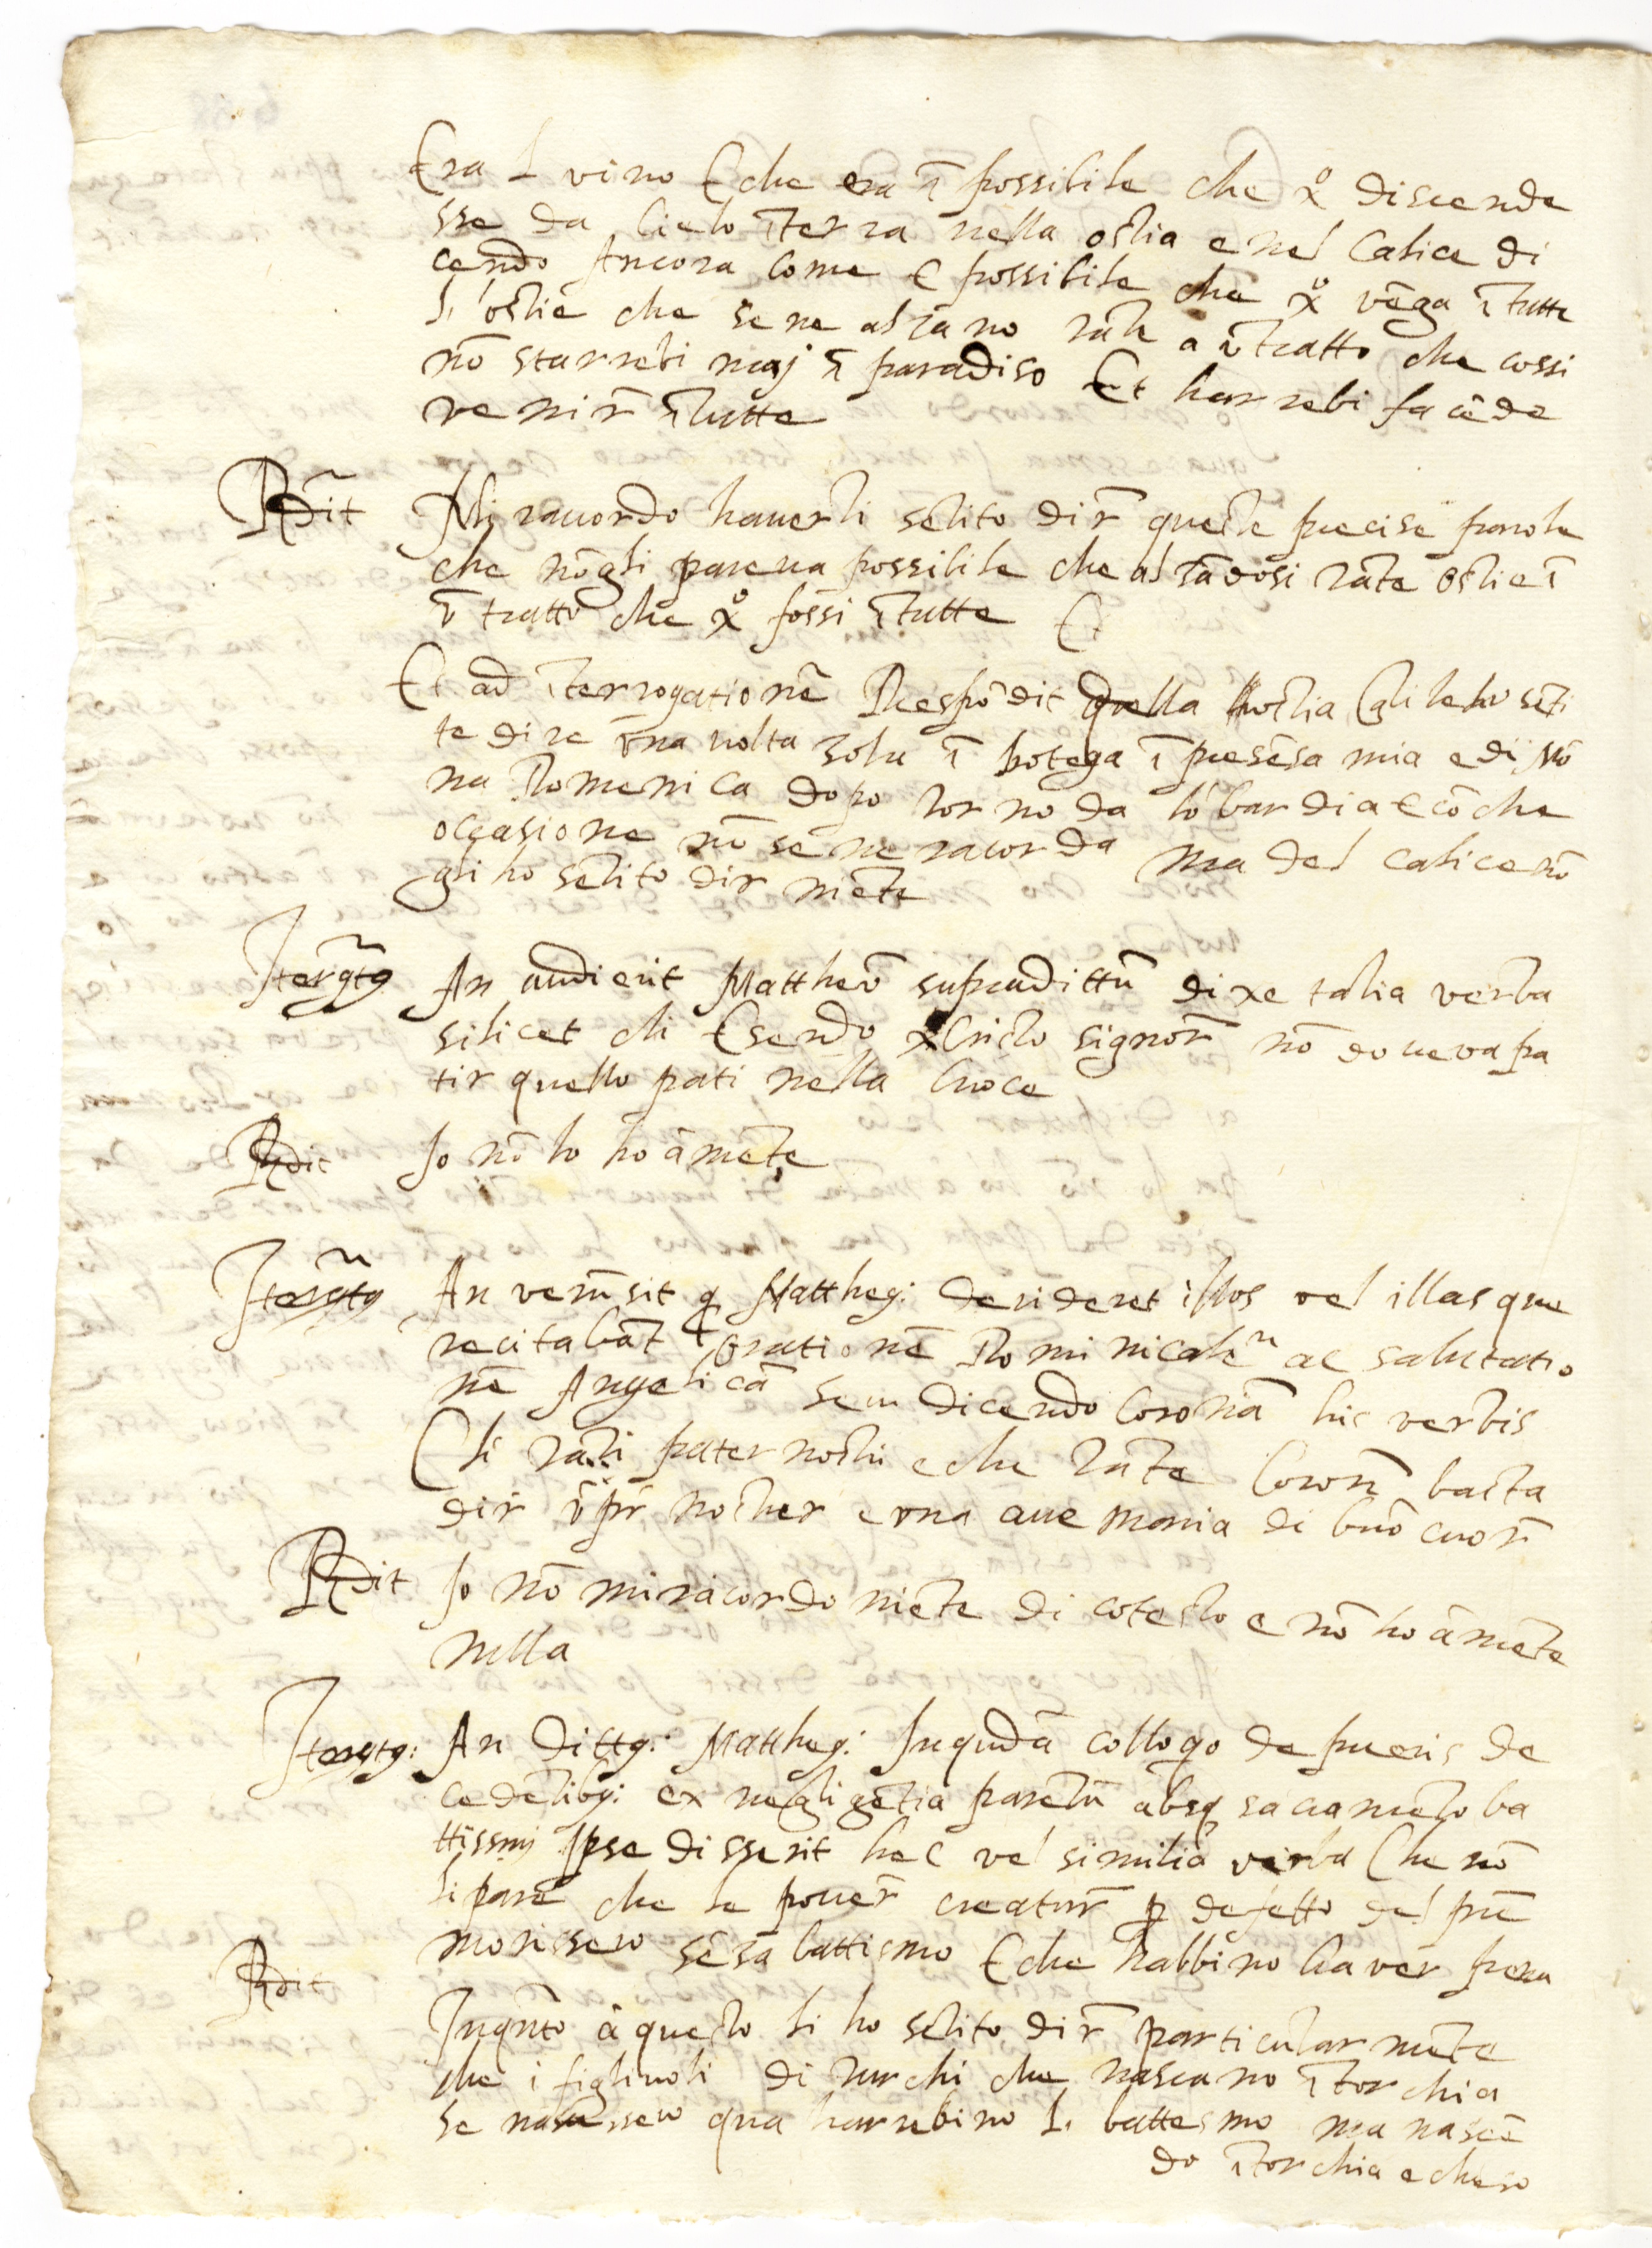 Era l vino E che era ĩ possibile che xº discende
sse da Cielo ĩterra nella ostia e nel Calice di
cendo Ancora Come E possibile che xº vēga ĩ tutte
l'ostie che se ne alzano tāte a ū tratto che cossi
nō starrebi maj ĩ paradiso Et harrebi facēde
venir ĩtutte
Rdit Mi racordo haverli sētito dir queste precise parole
che nōgli pareva possibile che alzādosi tāte ostie ĩ
ū tratto che xº fossi ĩtutte Et
Et ad ĩterrogationē Respōdit quella hostia gli le ho sēti
te dire una volta sola ĩ botega ĩ presēsa mia e di Mō
na Domenica dopo tornō da lōbardia e cō che
occasione nō se ne racorda ma del calice nō
gli ho sētito dir niēte
Itergtg An audierit Mattheū supradittū dixe talia verba
silicet chi Esendo x Cristo signor nō doveva pa
tir quello pati nella Croce
Rdit Io nō lo ho āmēte
Itergtg An verū sit q Mattheg: derideret illos vel illas que
recitabāt orationē Dominicalē ac salutatio
nē Angelicā seu dicendo Coronā his verbis
Chi tāti paternostri e che tāte Coron basta
dir ū pr noster e una ave maria di buō cuor
Rdit Io nō mi racordo niēte di cotesto e nō ho āmēte
nulla
Itergtg: An Dittg: Mattheg: In quodā colloqo de pueris de
cedētibg: ex negligētia parētū absq sacramēto ba
ttissmj Ipse disserit hec vel similia verba Che nō
li pare che le pover creatur p defetto del prē
morissero sēsa battismo E che habbino haver pena
Rdit Inqnto a questo li ho sētito dir particularmēte
che i figlivoli di turchi che nascano ĩtorchia
se nascessero qua harrebino l. battesmo ma nascē
do ĩtorchia e che so